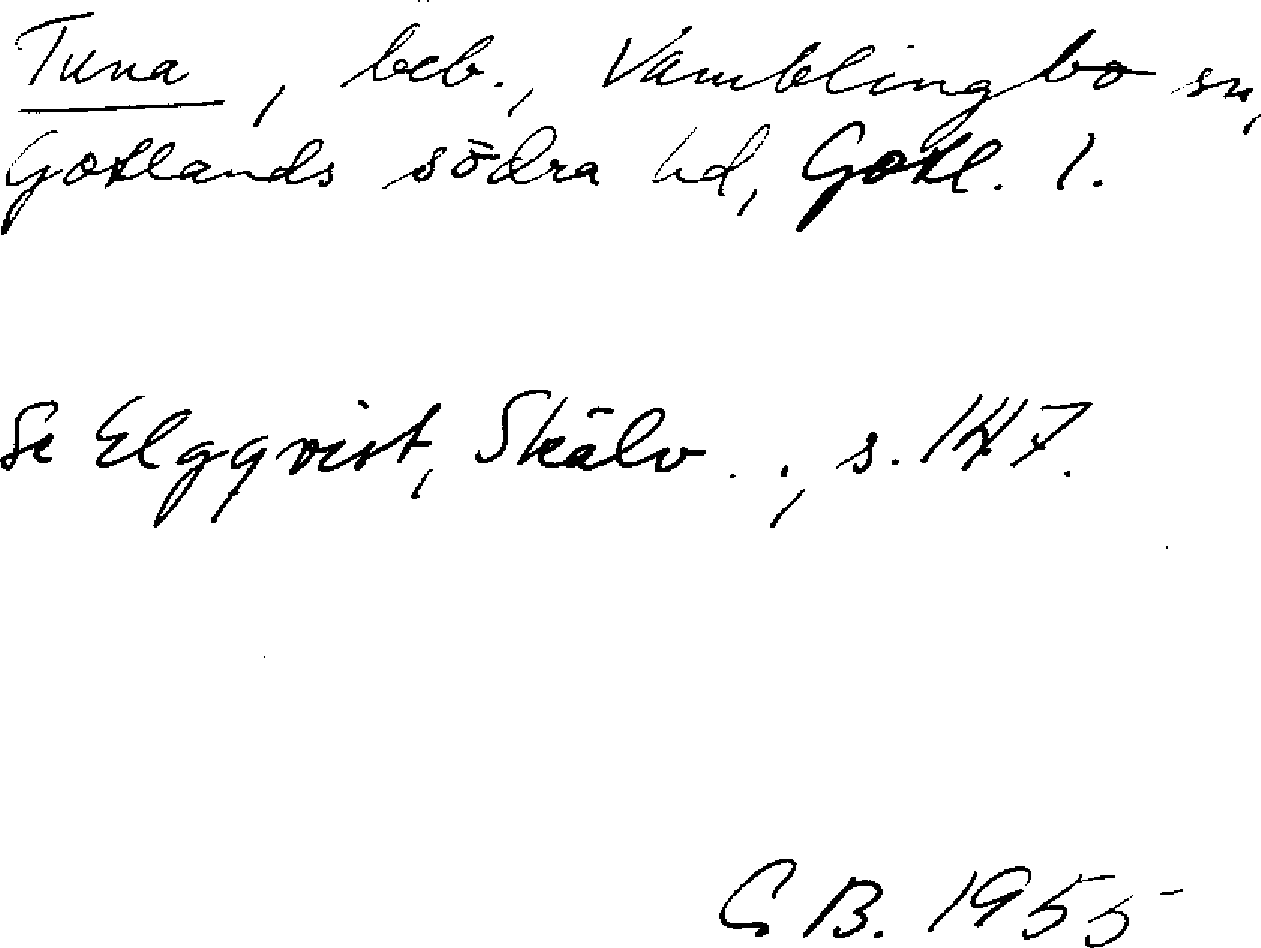 Tuna, beb., Vamblingbo sn,
Gotlands södra hd, Gotl. l.
Se Elgqvist, Skälv . ., s. 147.
G B. 1955